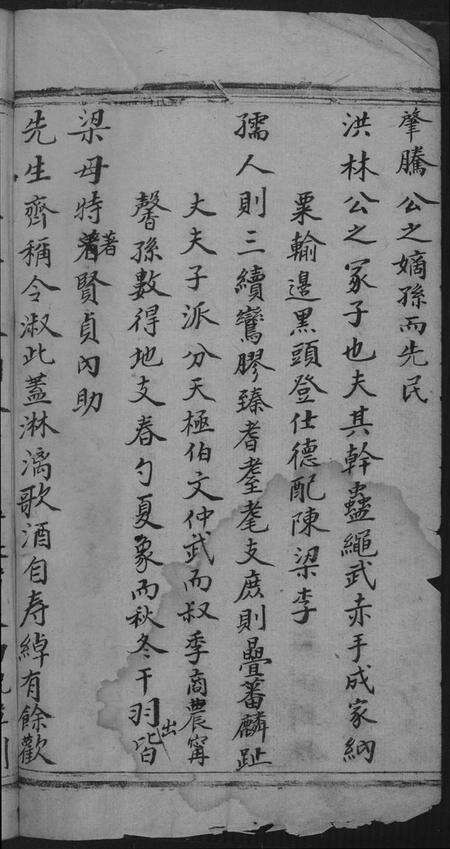 肇騰公之嫡孫而先民
洪林公之冢子也夫其幹蠱繩武赤手成家納
粟輸邊黑頭登仕德配陳梁李
孺人則三續鸞膠臻耆耋耄支庶則疊蕃麟趾
丈夫子派分天極伯文仲武而叔季商農寗
馨孫數得地支春勺夏象而秋冬干羽皆出
梁母特著賢貞內助
先生齊稱令淑此蓋淋漓歌酒自寿綽有餘歡